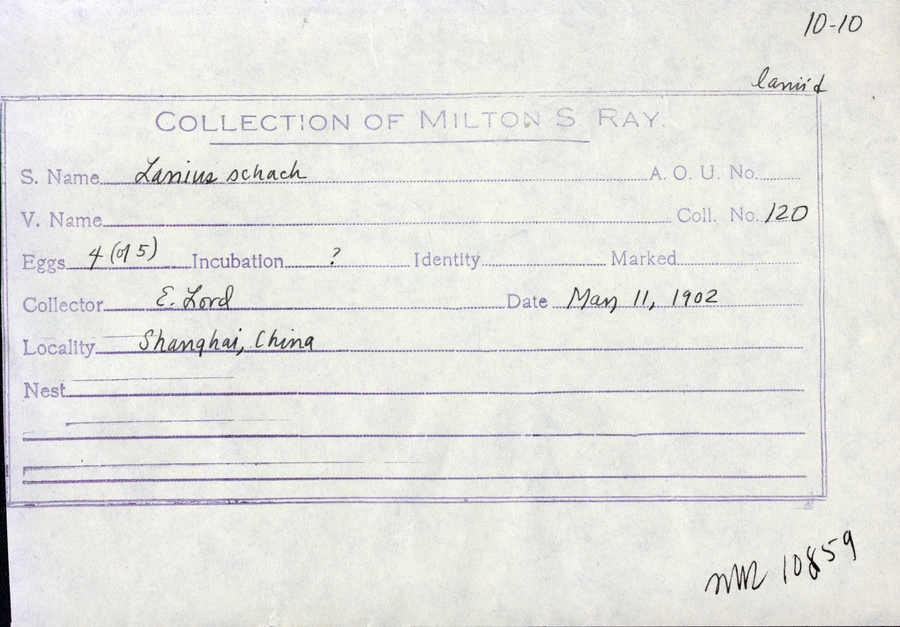 10-10
laniid
COLLECTION OF MILTON S. RAY.
S. Name Lanius schach A. O. U. No.
V. Name Coll. No. 120
Eggs 4 (of 5) Incubation ? Identity Marked
Collector E. Lord Date May 11, 1902
Locality Shanghai, China
Nest
10859